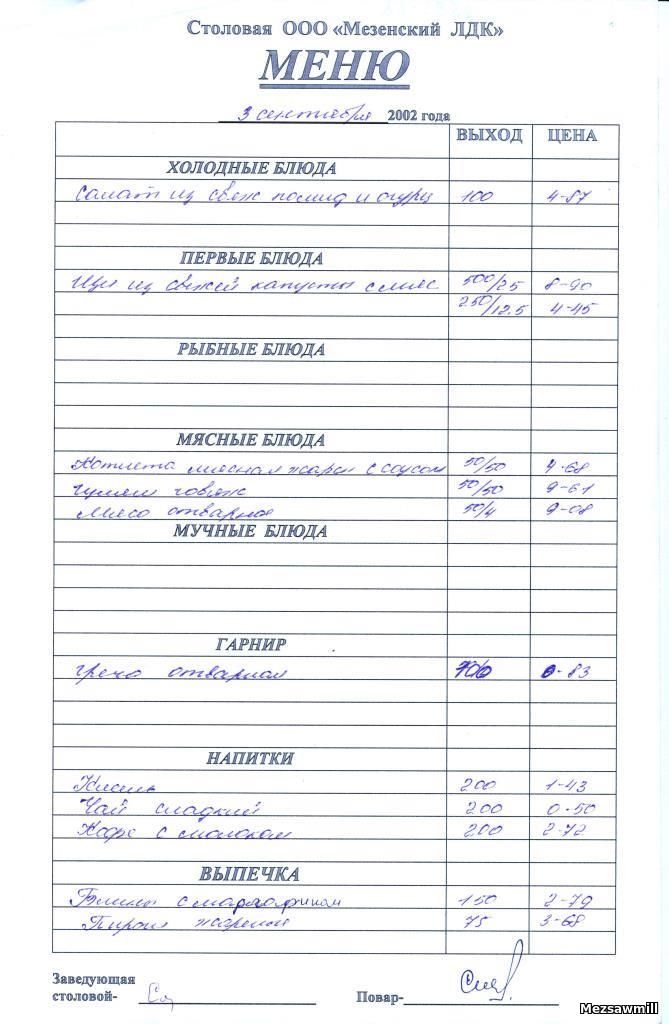 Столовая ООО «Мезенский ЛДК»
МЕНЮ
3 сентября 2002 года
ВЫХОД ЦЕНА
ХОЛОДНЫЕ БЛЮДА
Салат из свеж помид и огурц 100 4-87
ПЕРВЫЕ БЛЮДА
Щи из свежей капусты с мяс 500/25 8-90
250/12.5 4-45
РЫБНЫЕ БЛЮДА
МЯСНЫЕ БЛЮДА
Котлета мясная жарен с соусом 50/50 4-68
гуляш говяж 50/50 9-61
Мясо отварное 50/4 9-08
МУЧНЫЕ БЛЮДА
ГАРНИР
греча отварная 100 0-83
НАПИТКИ
Кисель 200 1-43
Чай сладкий 200 0-50
Кофе с молоком 200 2-72
ВЫПЕЧКА
Блины с маргарином 150 2-79
Пироги жареные 75 3-68
Заведующая
столовой-
Повар-
Mezsawmill